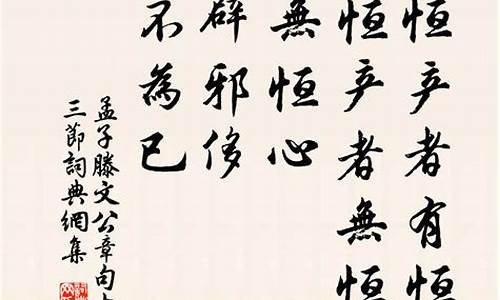 恒产者有恒
恒产者無恒
無恒心
辟邪侈
不為已
孟子滕文公章句
三節詞典網集